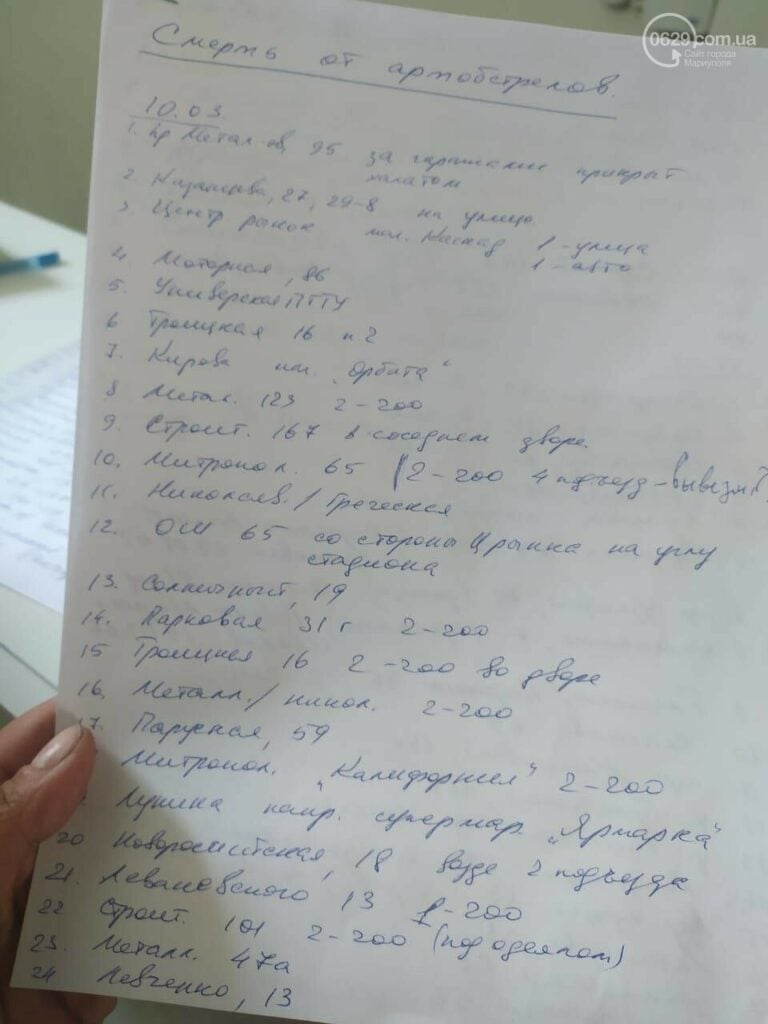 0629.com.ua
Сайт города
Мариуполя
Смерть от артобстрелов.
10.03.
1. пр Метал-ов, 95 за гаражами прикрыт
халатом
2. Казанцева, 27, 29-8 на улице
3. Центр рынок маг. Каскад 1-улица
1-авто
4 Моторная, 86
5. Универская ПГТУ
6 Троицкая 16 п.2
7. Кирова маг. „Орбита“
8 Метал. 123 2-200
9. Строит. 167 в соседнем дворе
10. Митропол. 65 (2-200 4 подъезд-
11. Николаев./Греческая
12. ОШ 65 со стороны Ц рынка на углу
стадиона
13. Солнечный, 19
14. Парковая 31г 2-200
15 Троицкая 16 2-200 во дворе
16. Металл./никол. 2-200
17. Парусная, 59
Митропол. „Калифорния“ 2-200
Лунина напр. супермар. „Ярмарка“
20 Новороссийская, 18 возле 2 подъезда
21. Леваневского 13 1-200
22 Строит. 101 2-200 (под одеялом)
23. Металл. 47а
24 Левченко, 13